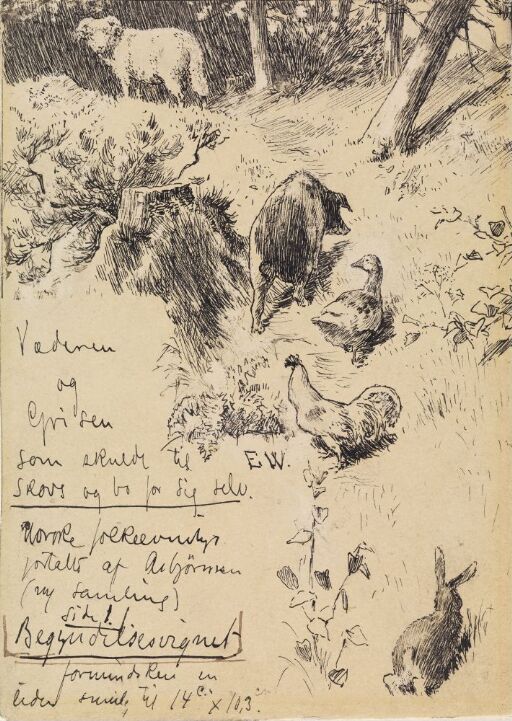 Væderen
og
Grisen
som skulde til
Skovs og bo for sig selv.
E.W.
Norske folkeeventyr
fortalte af Asbjörnsen
(ny Samling)
side 1
Begyndelsesvignet
formindskes en
liden smule til 14 c. x 10,3 c.